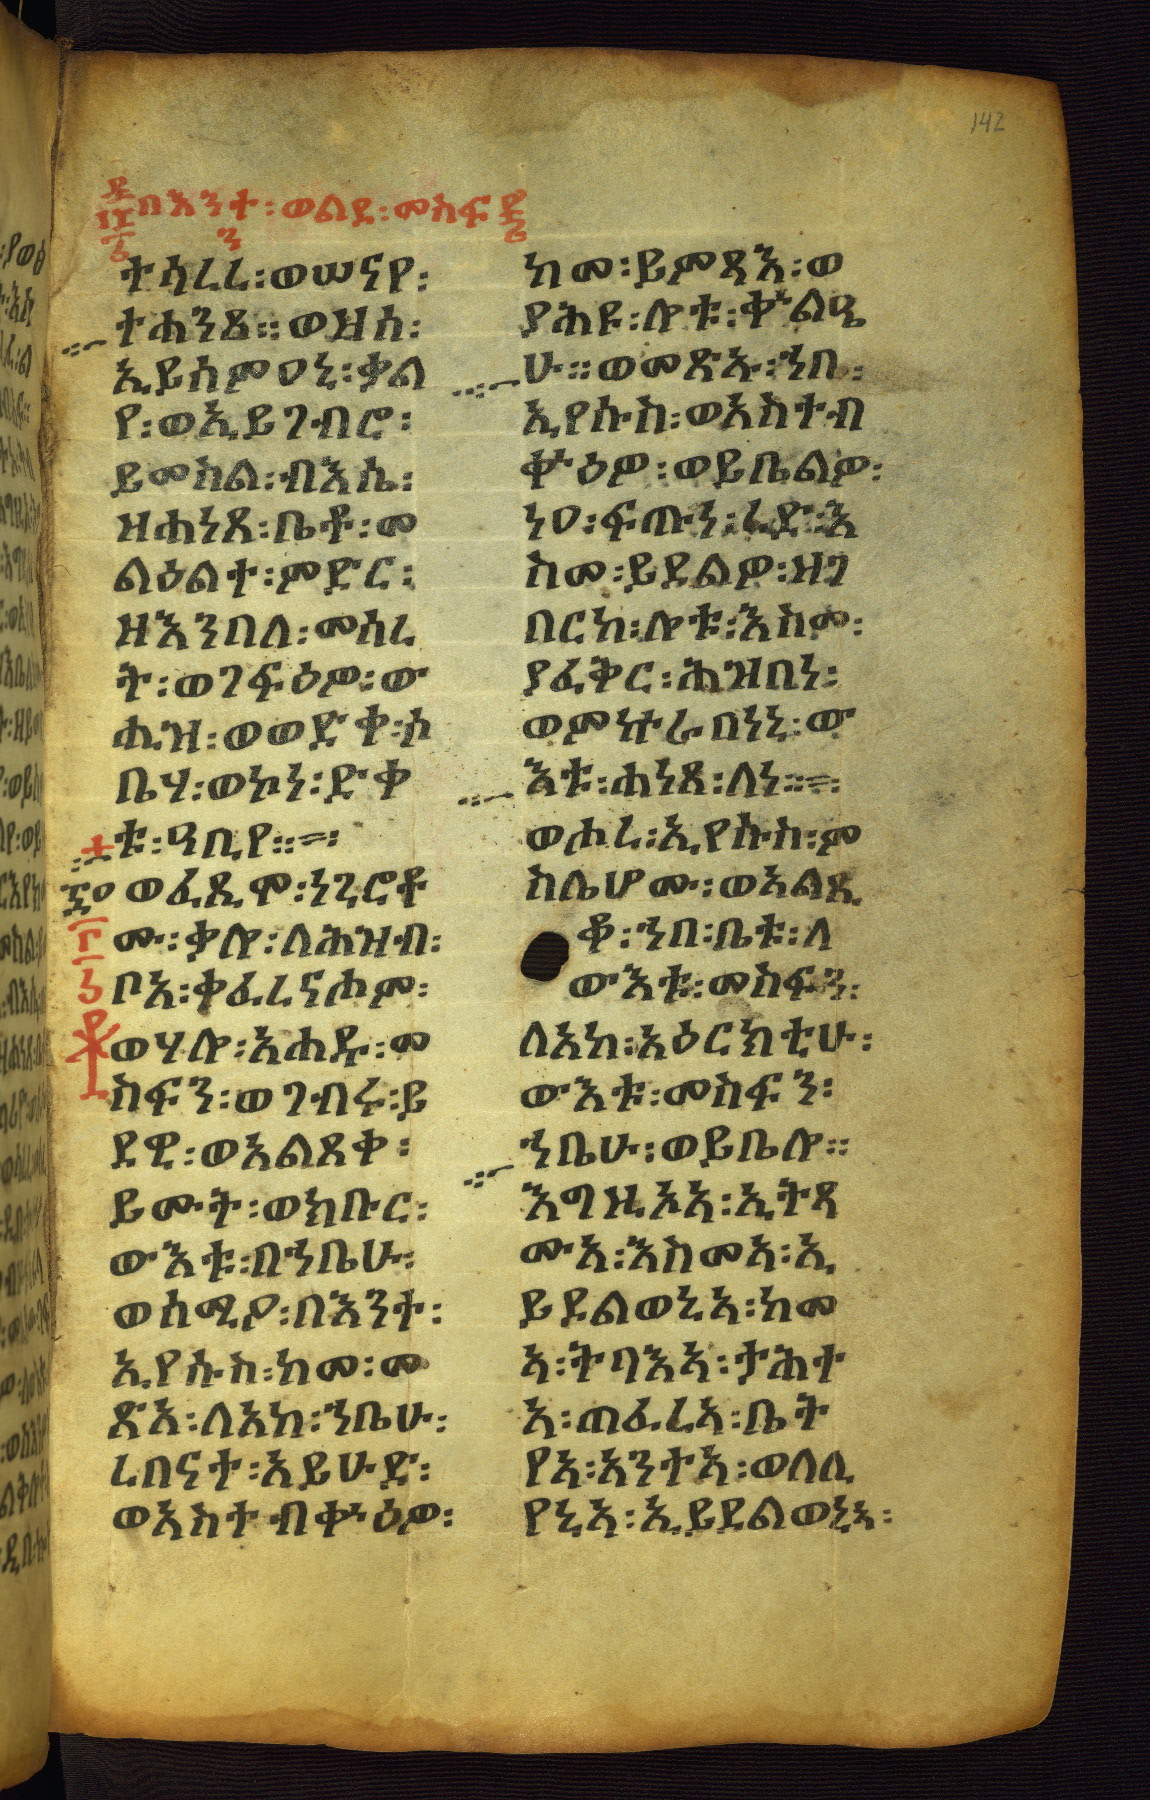 142
በእንተ፡ወልደ፡መስፍ
ን
ተሳረረ፡ወሠናየ፡
ተሐንጸ።ወዝሰ፡
ኢይሰምዐኒ፡ቃል
የ፡ወኢይገብሮ፡
ይመስል፡ብእሴ፡
ዘሐነጸ፡ቤቶ፡መ
ልዕልተ፡ምድር፡
ዘእንበለ፡መሰረ
ት፡ወገፍዕዎ፡ው
ሒዝ፡ወወድቀ፡ሶ
ቤሃ፡ወኮነ፡ድቀ
ቱ፡ዓቢየ።
ወፈጺሞ፡ነጊሮቶ
ሙ፡ቃሎ፡ለሕዝብ፡
ቦአ፡ቅፈረናሖም፡
ወሃሎ፡አሐዱ፡መ
ስፍን፡ወገብሩ፡ይ
ደዊ፡ወአልጸቀ፡
ይሙት፡ወክቡር፡
ውእቱ፡በኀቤሁ፡
ወሰሚዖ፡በእንተ፡
ኢየሱስ፡ከመ፡መ
ጽአ፡ለአከ፡ኀቤሁ፡
ረበናተ፡አይሁድ፡
ወአስተብቍዕዎ፡
ከመ፡ይምጻእ፡ወ
ያሕዩ፡ሎቱ፡ቍልዔ
ሁ።ወመጽኡ፡ኀበ፡
ኢየሱስ፡ወአስተብ
ቍዕዎ፡ወይቤልዎ፡
ነዐ፡ፍጡነ፡ረድ፡እ
ስመ፡ይደልዎ፡ዘገ
በርከ፡ሎቱ፡እስመ፡
ያፈቅር፡ሕዝበነ፡
ወምኵራበነኒ፡ው
እቱ፡ሐነጸ፡ለነ።
ወሖረ፡ኢየሱስ፡ም
ስሌሆሙ፡ወአልጺ
ቆ፡ኀበ፡ቤቱ፡ለ
ውእቱ፡መስፍን፡
ለአከ፡አዕርክቲሁ፡
ውእቱ፡መስፍን፡
ኀቤሁ፡ወይቤሎ።
እግዚኦአ፡ኢትጻ
ሙአ፡እስመአ፡ኢ
ይደልወኒአ፡ከመ
አ፡ትባእአ፡ታሕተ
አ፡ጠፈረአ፡ቤት
የአ፡አንተአ፡ወለሊ
የኒአ፡ኢይደልወኒአ፡